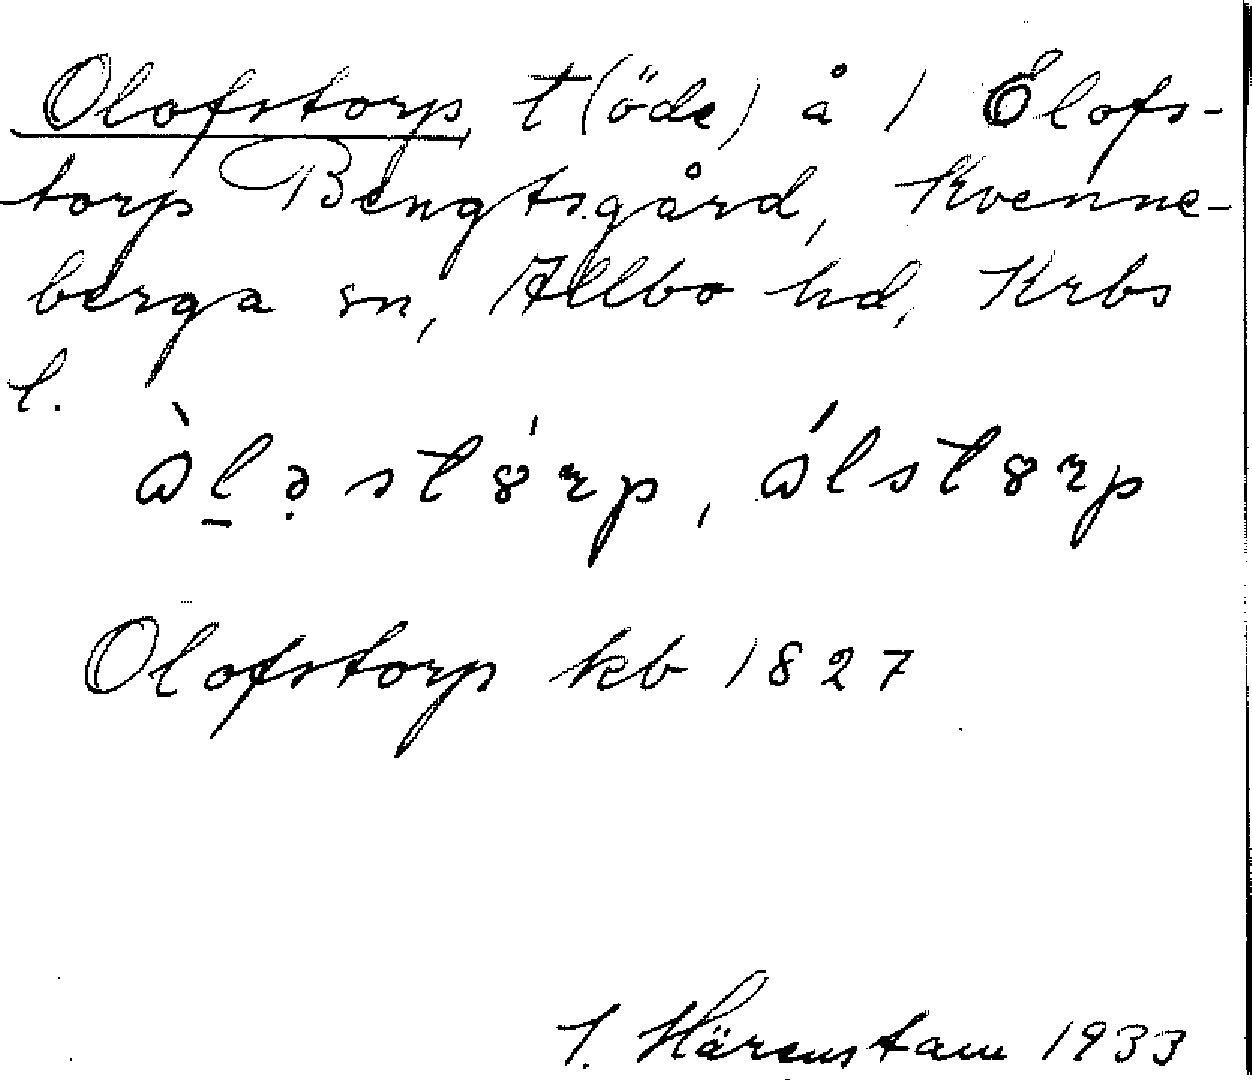 Olofstorp t (öde) å 1 Elofs-
torp Bengtsgård, Kvenne-
berga sn, Allbo hd, Krbs
l.
Olofstorp kb 1827
Härenstam 1933